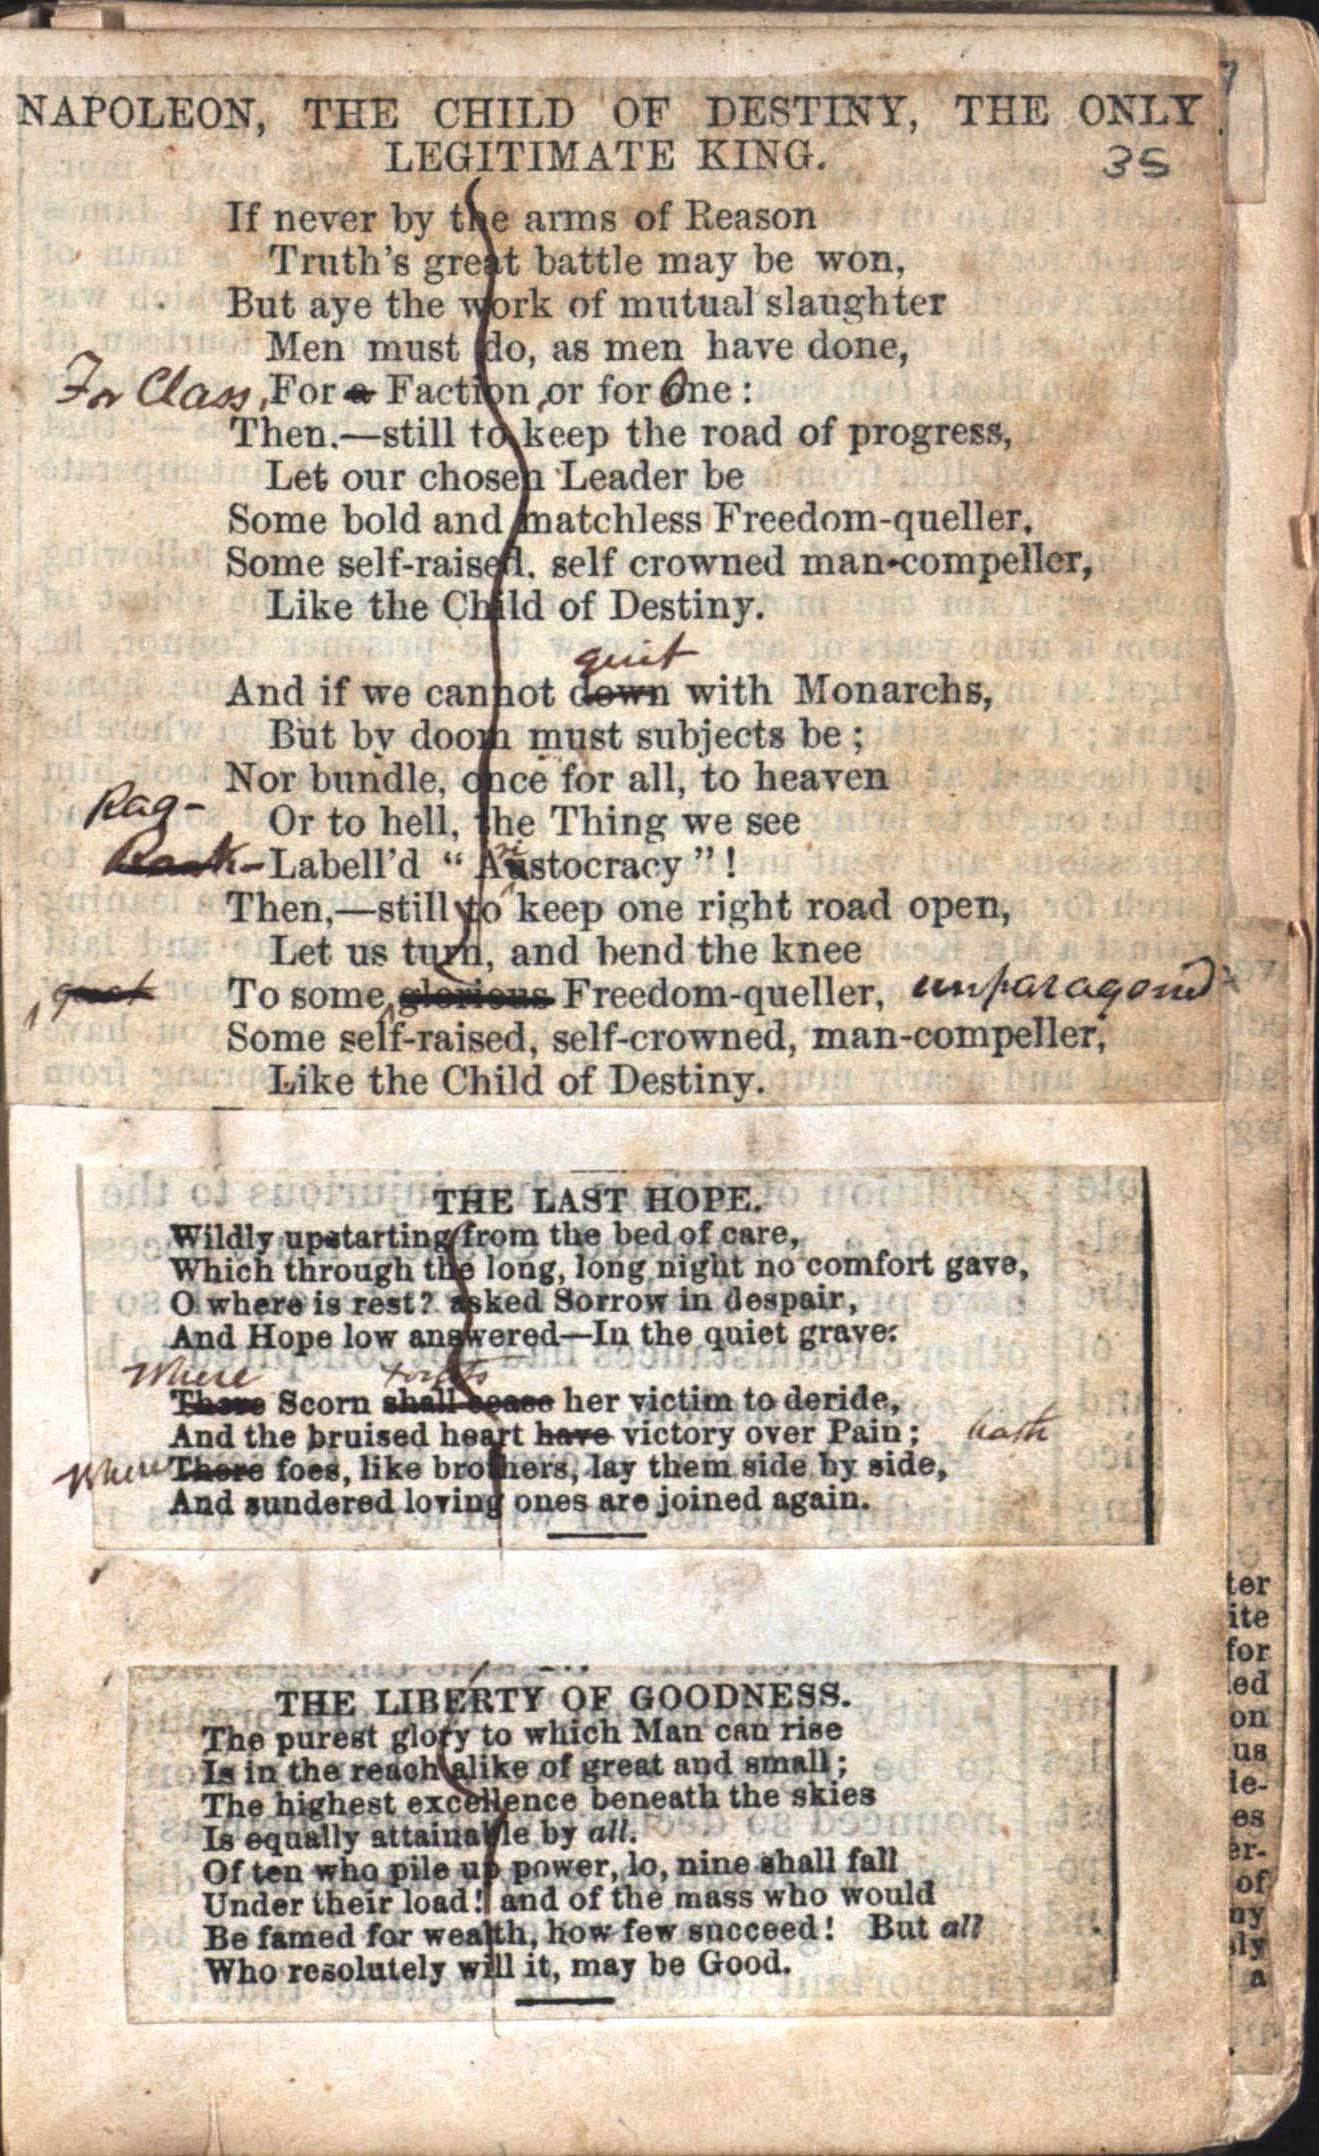 NAPOLEON, THE CHILD OF DESTINY, THE ONLY
LEGITIMATE KING.
35
If never by the arms of Reason
Truth's great battle may be won,
But aye the work of mutual slaughter
Men must do, as men have done,
For Class, For a Faction, or for One :
Then.—still to keep the road of progress,
Let our chosen Leader be
Some bold and matchless Freedom-queller,
Some self-raised, self crowned man-compeller,
Like the Child of Destiny.
quit
And if we cannot down with Monarchs,
But by doom must subjects be ;
Nor bundle, once for all, to heaven
Rag-
Or to hell, the Thing we see
Rank-Labell'd “ Austocracy ” !
ri
Then,—still to keep one right road open,
Let us turn, and bend the knee
great To some glorious Freedom-queller, unparagoned
Some self-raised, self-crowned, man-compeller,
Like the Child of Destiny.
THE LAST HOPE.
Wildly upstarting from the bed of care,
Which through the long, long night no comfort gave,
O where is rest? asked Sorrow in despair,
And Hope low answered—In the quiet grave:
Where
There Scorn shall cease her victim to deride,
And the bruised heart have victory over Pain; hath
Where There foes, like brothers, lay them side by side,
And sundered loving ones are joined again.
THE LIBERTY OF GOODNESS.
The purest glory to which Man can rise
Is in the reach alike of great and small;
The highest excellence beneath the skies
Is equally attainable by all.
Of ten who pile up power, lo, nine shall fall
Under their load! and of the mass who would
Be famed for wealth, how few succeed! But all
Who resolutely will it, may be Good.
ter
ite
for
ed
on
us
le-
es
er-
of
ny
sly
a